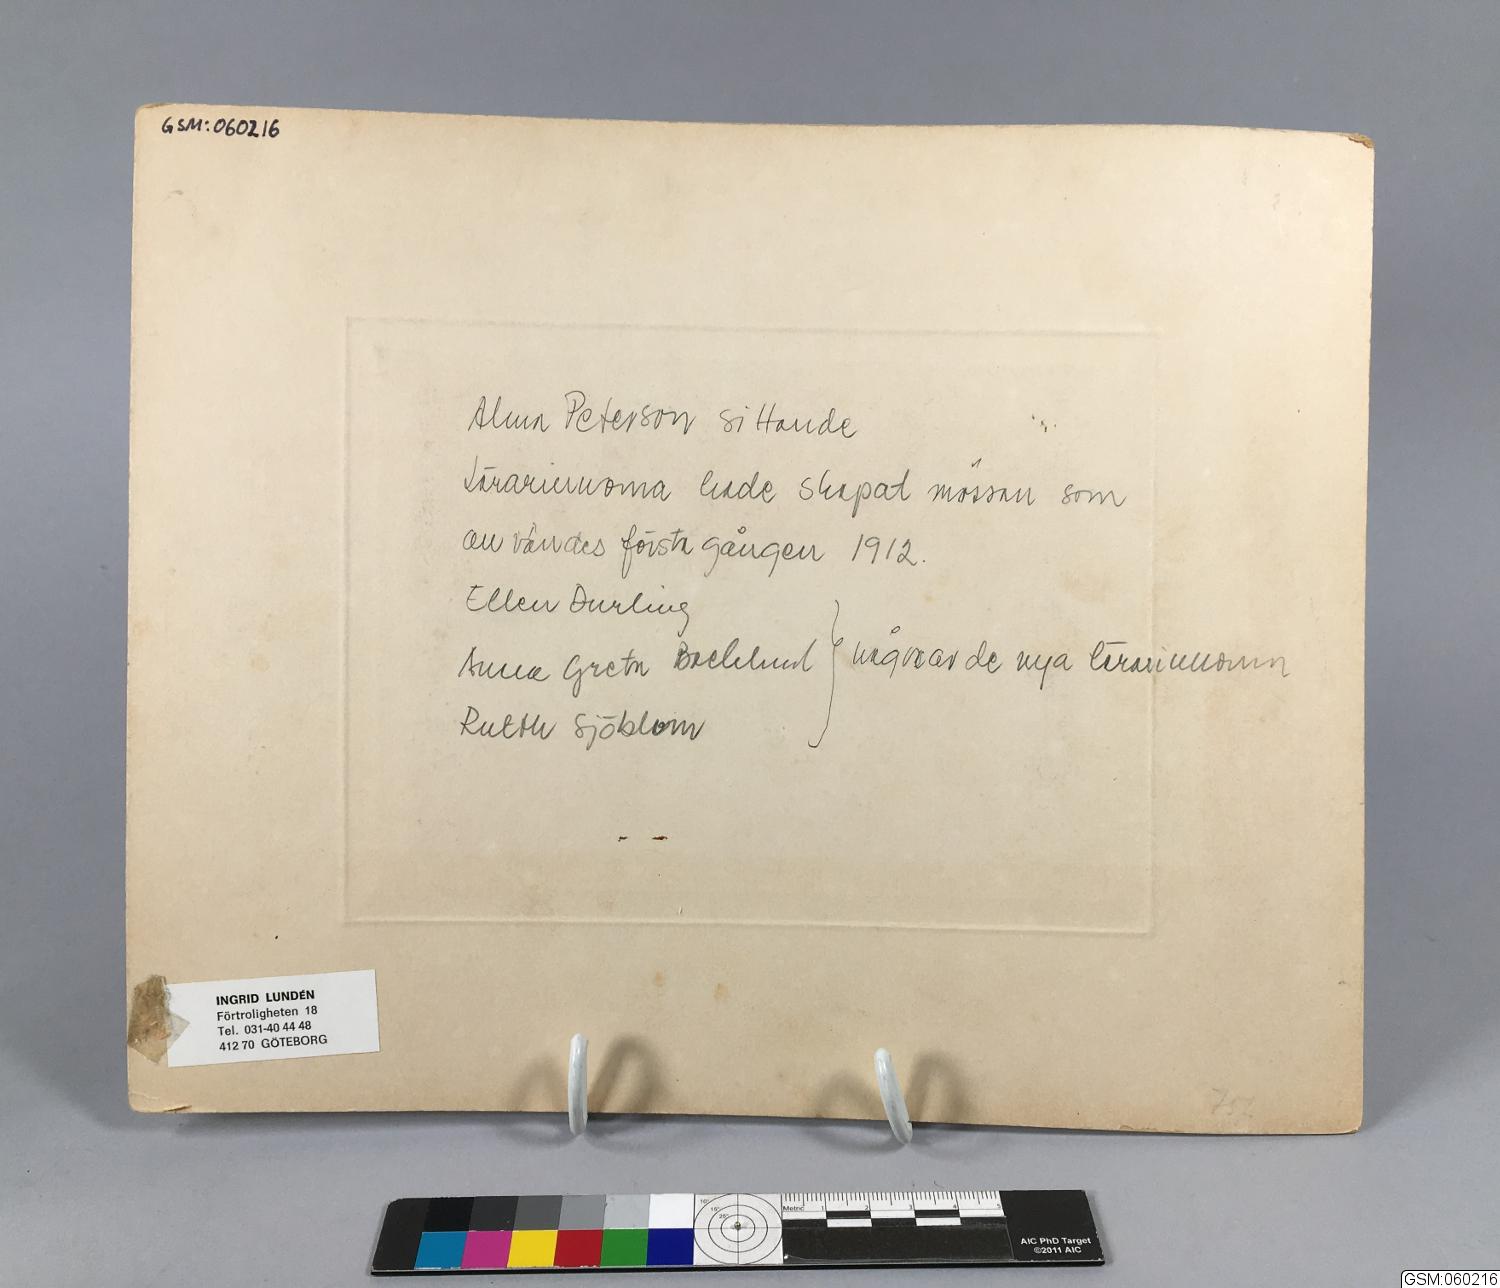 GSM:060216
Alma Peterson sittande
Lärarinnorna hade skapat mössan som
användes första gången 1912.
Ellen Durling
Anna Greta Backlund } några av de nya lärarinnorna
Ruth Sjöblom
INGRID LUNDÉN
Förtroligheten 18
Tel. 031-40 44 48
412 70 GÖTEBORG
Metric 1 2 3 4 5
AIC PhD Target
©2011 AIC
GSM:060216